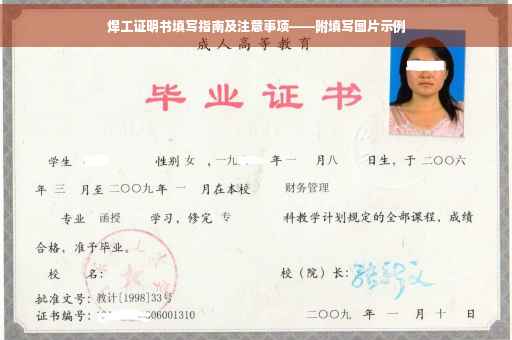 焊工证明书填写指南及注意事项——附填写图片示例
成人高等教育
毕业证书
学生 性别 女 ，一九 年 一 月八 日生，于 二〇〇六
年 三 月至 二〇〇九 年 一 月在本校 财务管理
专业 函授 学习，修完 专 科教学计划规定的全部课程，成绩
合格，准予毕业。
校 名： 校（院）长：
批准文号：教计[1998]33号
证书编号： 06001310 二〇〇九 年 一 月 十 日